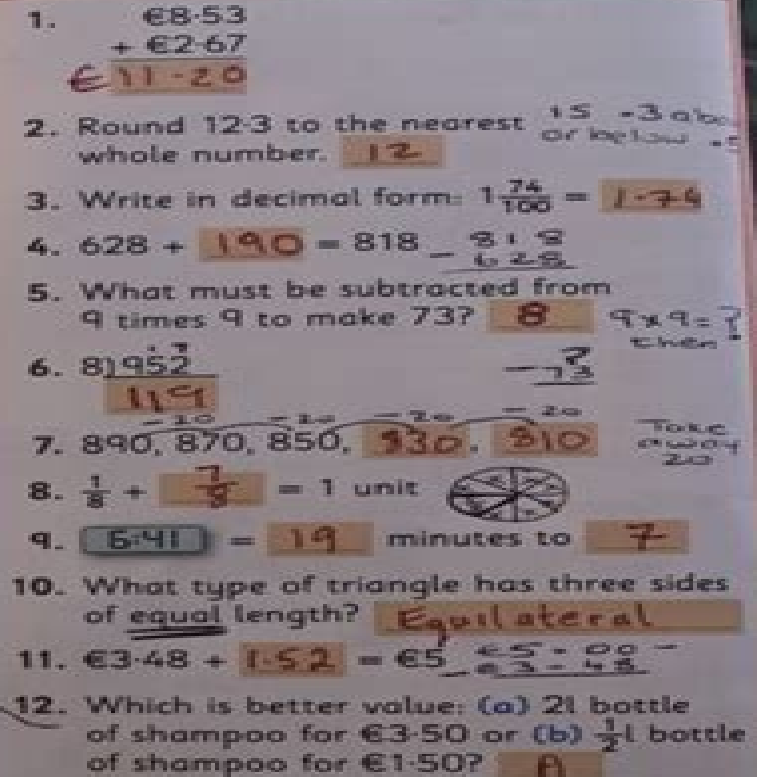 1. €8·53
+ €2·67
€ 11·20
2. Round 12·3 to the nearest
whole number. 12
·5 ·3 abo
or below ·5
3. Write in decimal form: 1 74/100 = 1·74
4. 628 + 190 = 818
818
- 628
5. What must be subtracted from
9 times 9 to make 73? 8
9 x 9 = ?
then
?
- 73
6. 8)952
119
-20 -20 -20 -20
7. 890, 870, 850, 830, 810
Take
away
20
8. 1/8 + 7/8 = 1 unit
9. 6:41 = 19 minutes to 7
10. What type of triangle has three sides
of equal length? Equilateral
11. €3·48 + 1·52 = €5
€5-00
- €3-48
12. Which is better value: (a) 2l bottle
of shampoo for €3·50 or (b) 1/2l bottle
of shampoo for €1·50? A